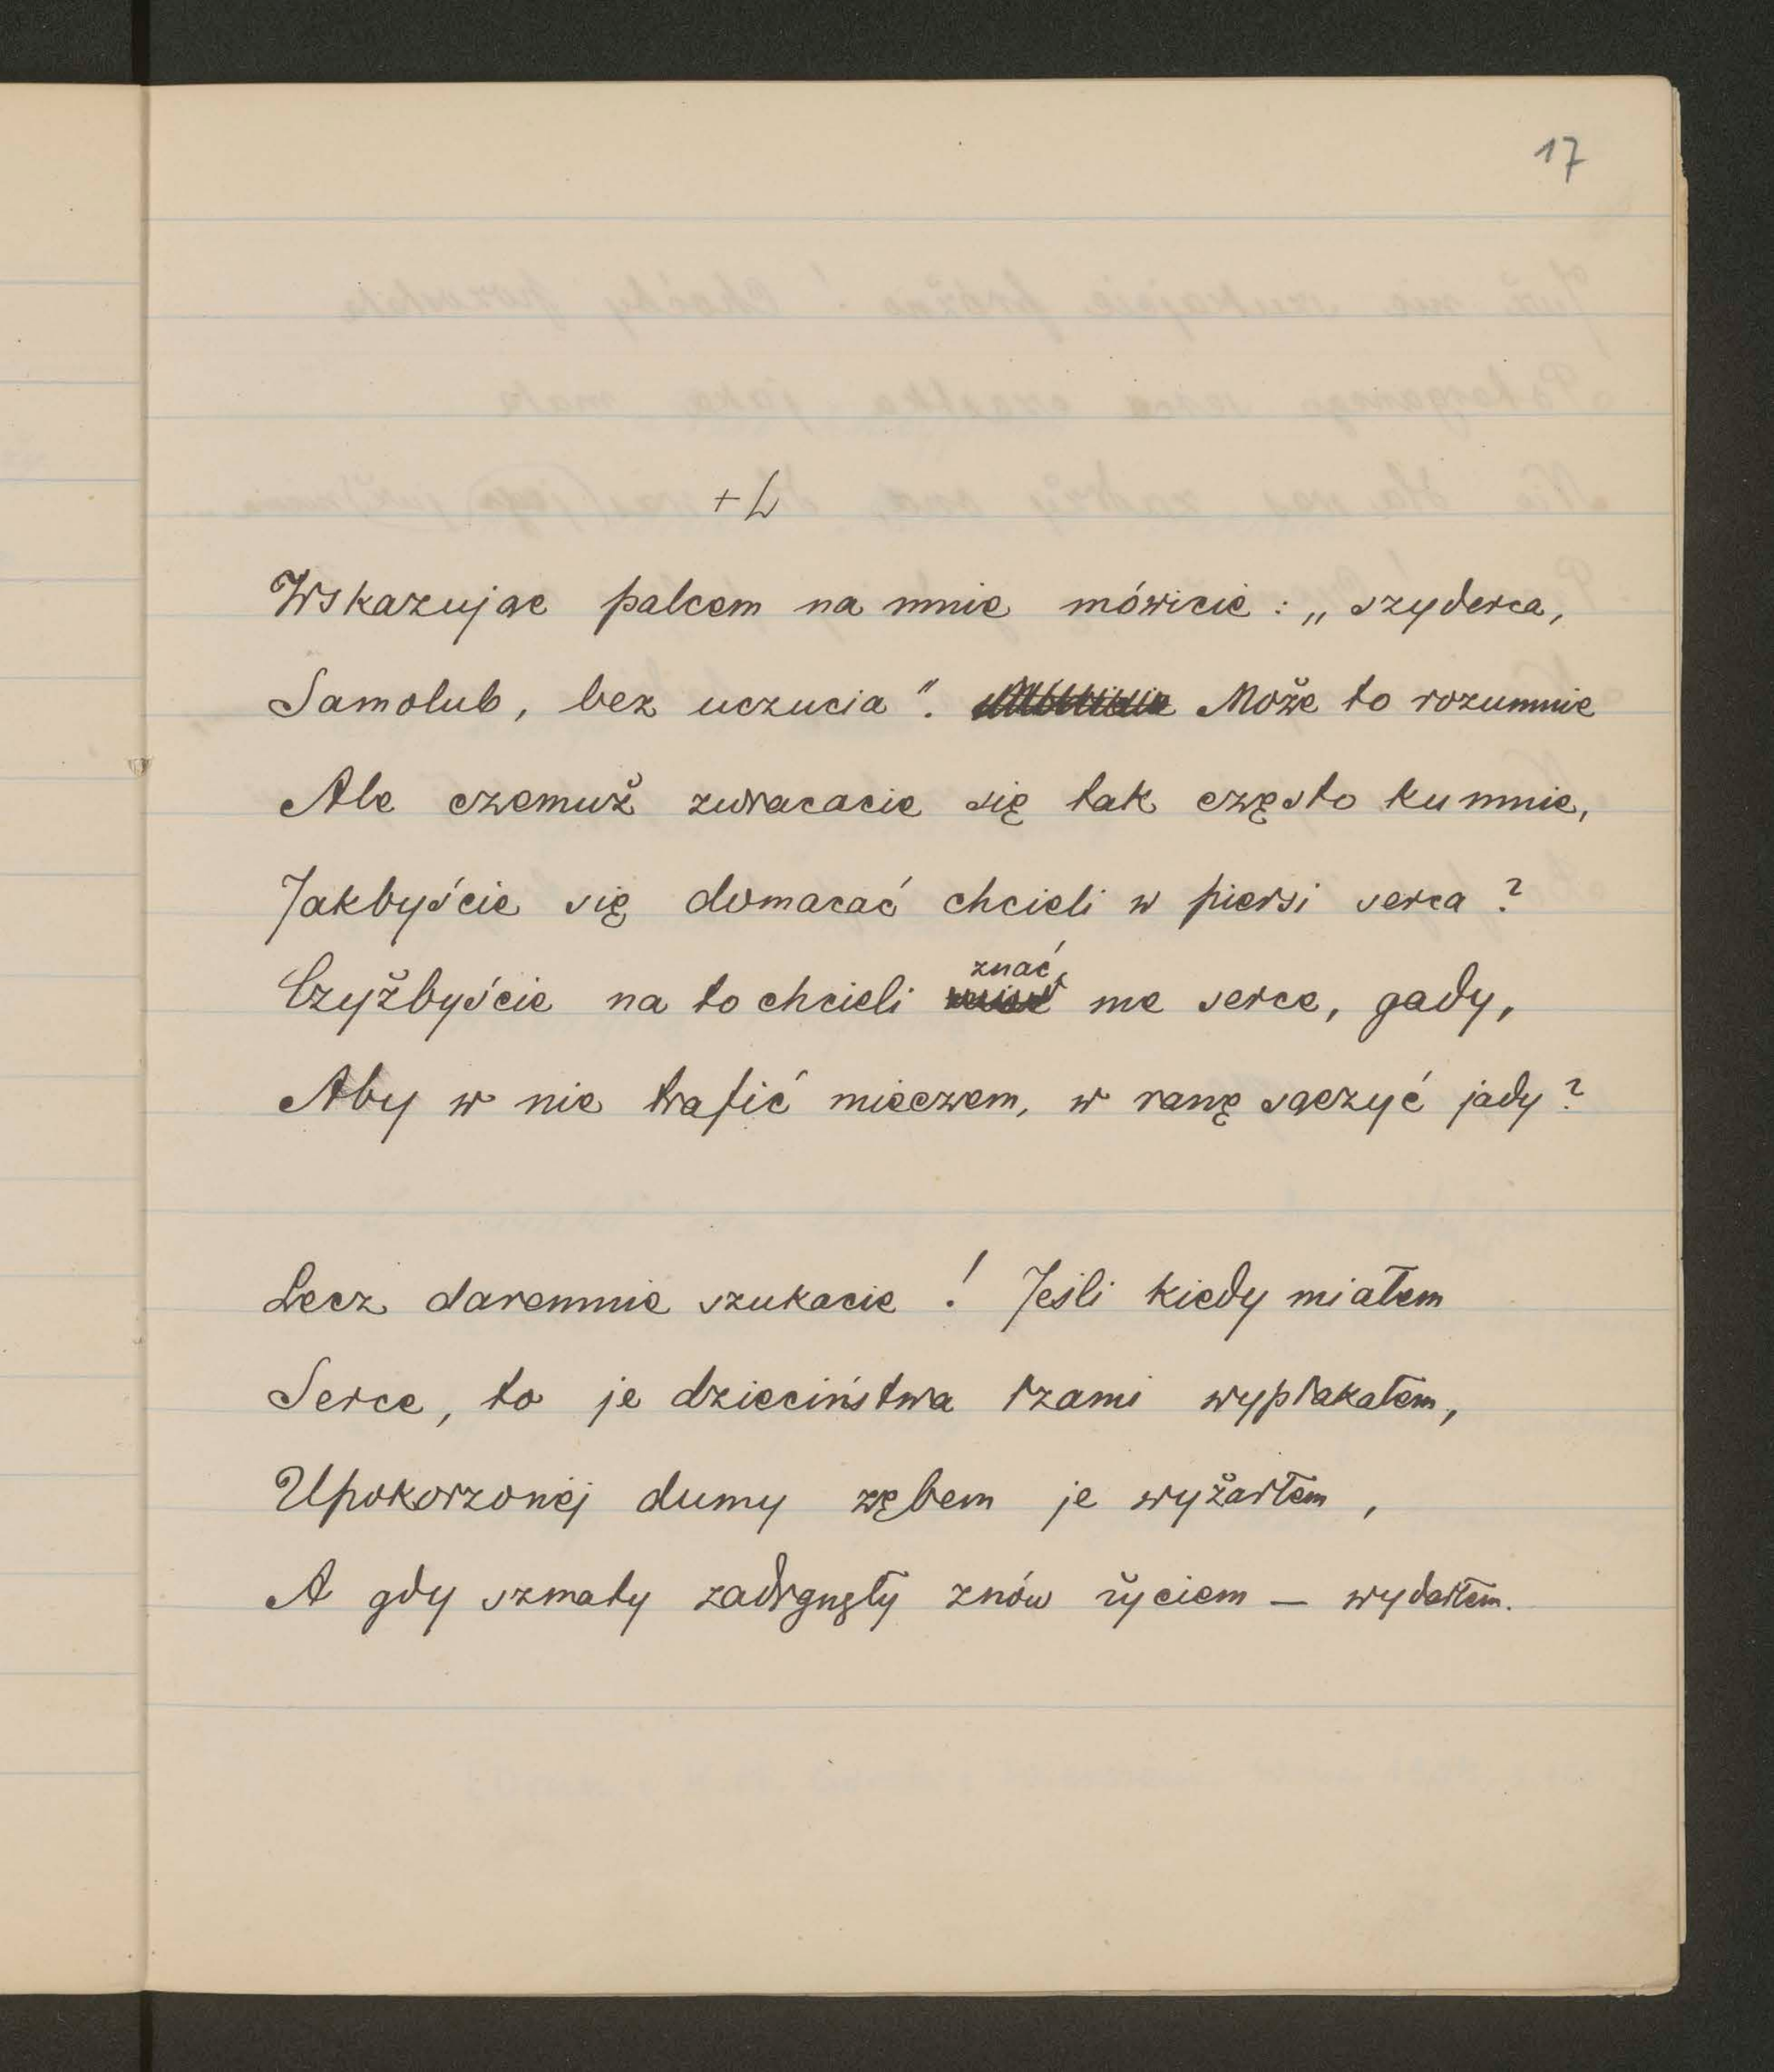 17
+L
Wskazując palcem na mnie mówicie: „szyderca,
Samolub, bez uczucia". Może to rozumnie
Ale czemuż zwracacie się tak często ku mnie,
Jakbyście się domacać chcieli w piersi serca?
znać
Czyżbyście na to chcieli me serce, gady,
Aby w nie trafić mieczem, w ranę sączyć jady?
Lecz daremnie szukacie! Jeśli kiedy miałem
Serce, to je dzieciństwa łzami wypłakałem,
Upokorzonéj dumy zębem je wyżarłem,
A gdy szmaty zadrgnęły znów życiem – wydarłem.